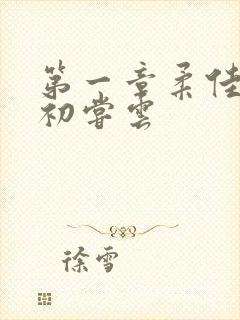 第一章柔佳
初尝云
徐雪